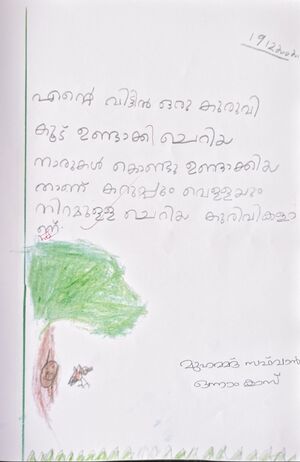 19/12/2020
എന്റെ വീട്ടിൽ ഒരു കുരുവി
കൂട് ഉണ്ടാക്കി ചെറിയ
നാരുകൾ കൊണ്ടു ഉണ്ടാക്കിയ
താണ് കറുപ്പും വെള്ളയും
നിറമുള്ള ചെറിയ കുരിവികളാ
ണ്
മുഹമ്മദ് സഫ്വാൻ
ഒന്നാം ക്ലാസ്